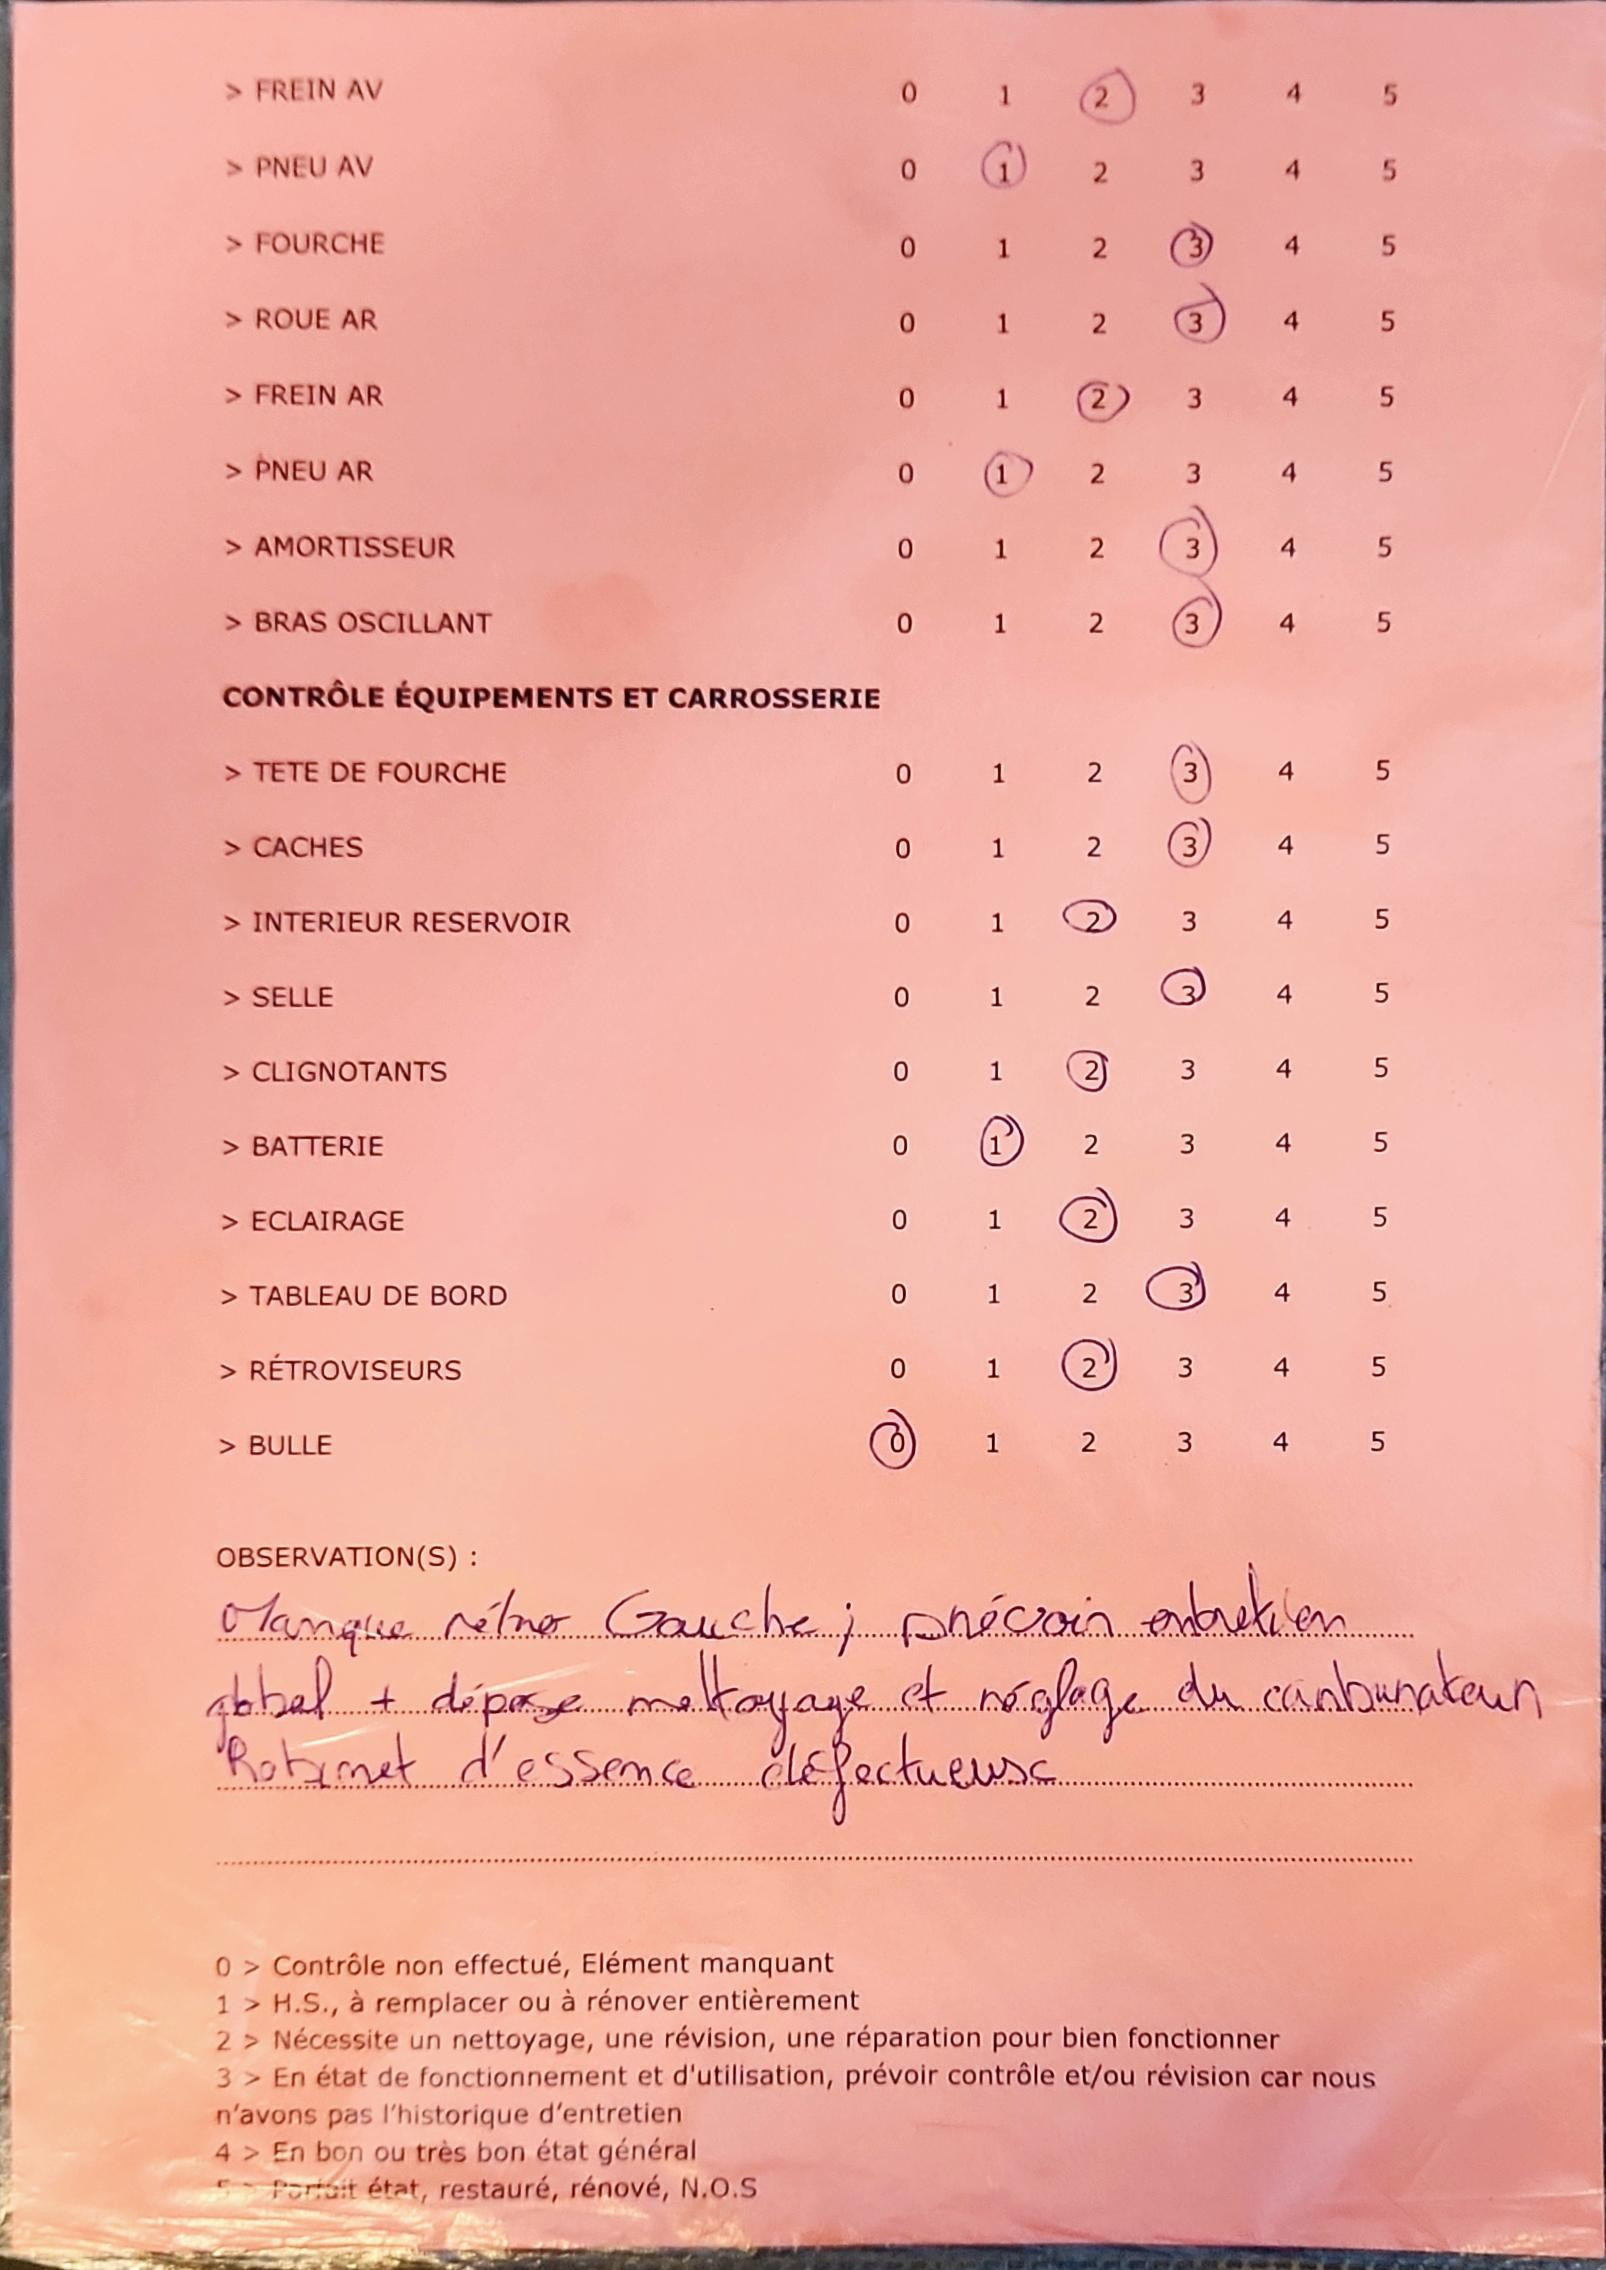 > FREIN AV 0 1 2 3 4 5
> PNEU AV 0 1 2 3 4 5
> FOURCHE 0 1 2 3 4 5
> ROUE AR 0 1 2 3 4 5
> FREIN AR 0 1 2 3 4 5
> PNEU AR 0 1 2 3 4 5
> AMORTISSEUR 0 1 2 3 4 5
> BRAS OSCILLANT 0 1 2 3 4 5
CONTRÔLE ÉQUIPEMENTS ET CARROSSERIE
> TETE DE FOURCHE 0 1 2 3 4 5
> CACHES 0 1 2 3 4 5
> INTERIEUR RESERVOIR 0 1 2 3 4 5
> SELLE 0 1 2 3 4 5
> CLIGNOTANTS 0 1 2 3 4 5
> BATTERIE 0 1 2 3 4 5
> ECLAIRAGE 0 1 2 3 4 5
> TABLEAU DE BORD 0 1 2 3 4 5
> RÉTROVISEURS 0 1 2 3 4 5
> BULLE 0 1 2 3 4 5
OBSERVATION(S) :
Manque rétro Gauche ; prévoir entretien
global + dépose nettoyage et réglage du carburateur
Robinet d'essence défectueuse
0 > Contrôle non effectué, Elément manquant
1 > H.S., à remplacer ou à rénover entièrement
2 > Nécessite un nettoyage, une révision, une réparation pour bien fonctionner
3 > En état de fonctionnement et d'utilisation, prévoir contrôle et/ou révision car nous
n'avons pas l'historique d'entretien
4 > En bon ou très bon état général
5 > Parfait état, restauré, rénové, N.O.S